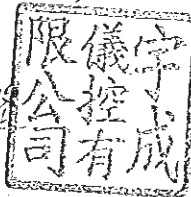 宇成
儀控有
限公司